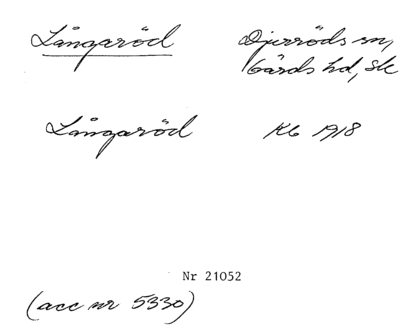 Långaröd Djurröds sn,
Gärds hd, Sk
Långaröd KG 1918
Nr 21052
(acc nr 5330)